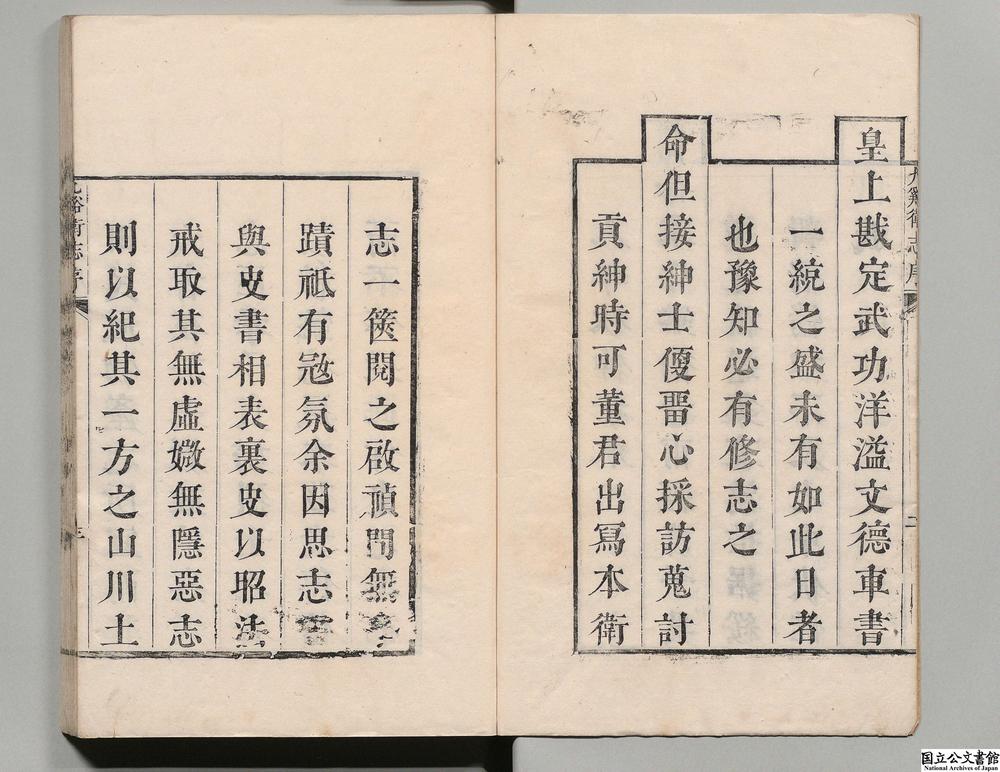 皇上戡定武功洋溢文德車書
一統之盛未有如此日者
也豫知必有修志之
命但接紳士優畱心採訪蒐討
貢紳時可董君出寫本衛
九谿衛志序
二
志一篋閱之啟禎間無
蹟祗有寇氛余因思志
與史書相表裏史以昭法
戒取其無虛媺無隱惡志
則以紀其一方之山川土
九谿衛志序
三
国立公文書館
National Archives of Japan